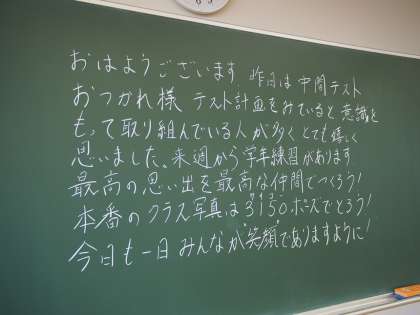 おはようございます 昨日は中間テスト
おつかれ様 テスト計画をみていると、意識を
もって取り組んでいる人が多くとても嬉しく
思いました。来週から学年練習があります
最高の思い出を最高な仲間でつくろう!
本番のクラス写真は3150ポーズでとろう!
今日も一日みんなが"笑顔"でありますように!